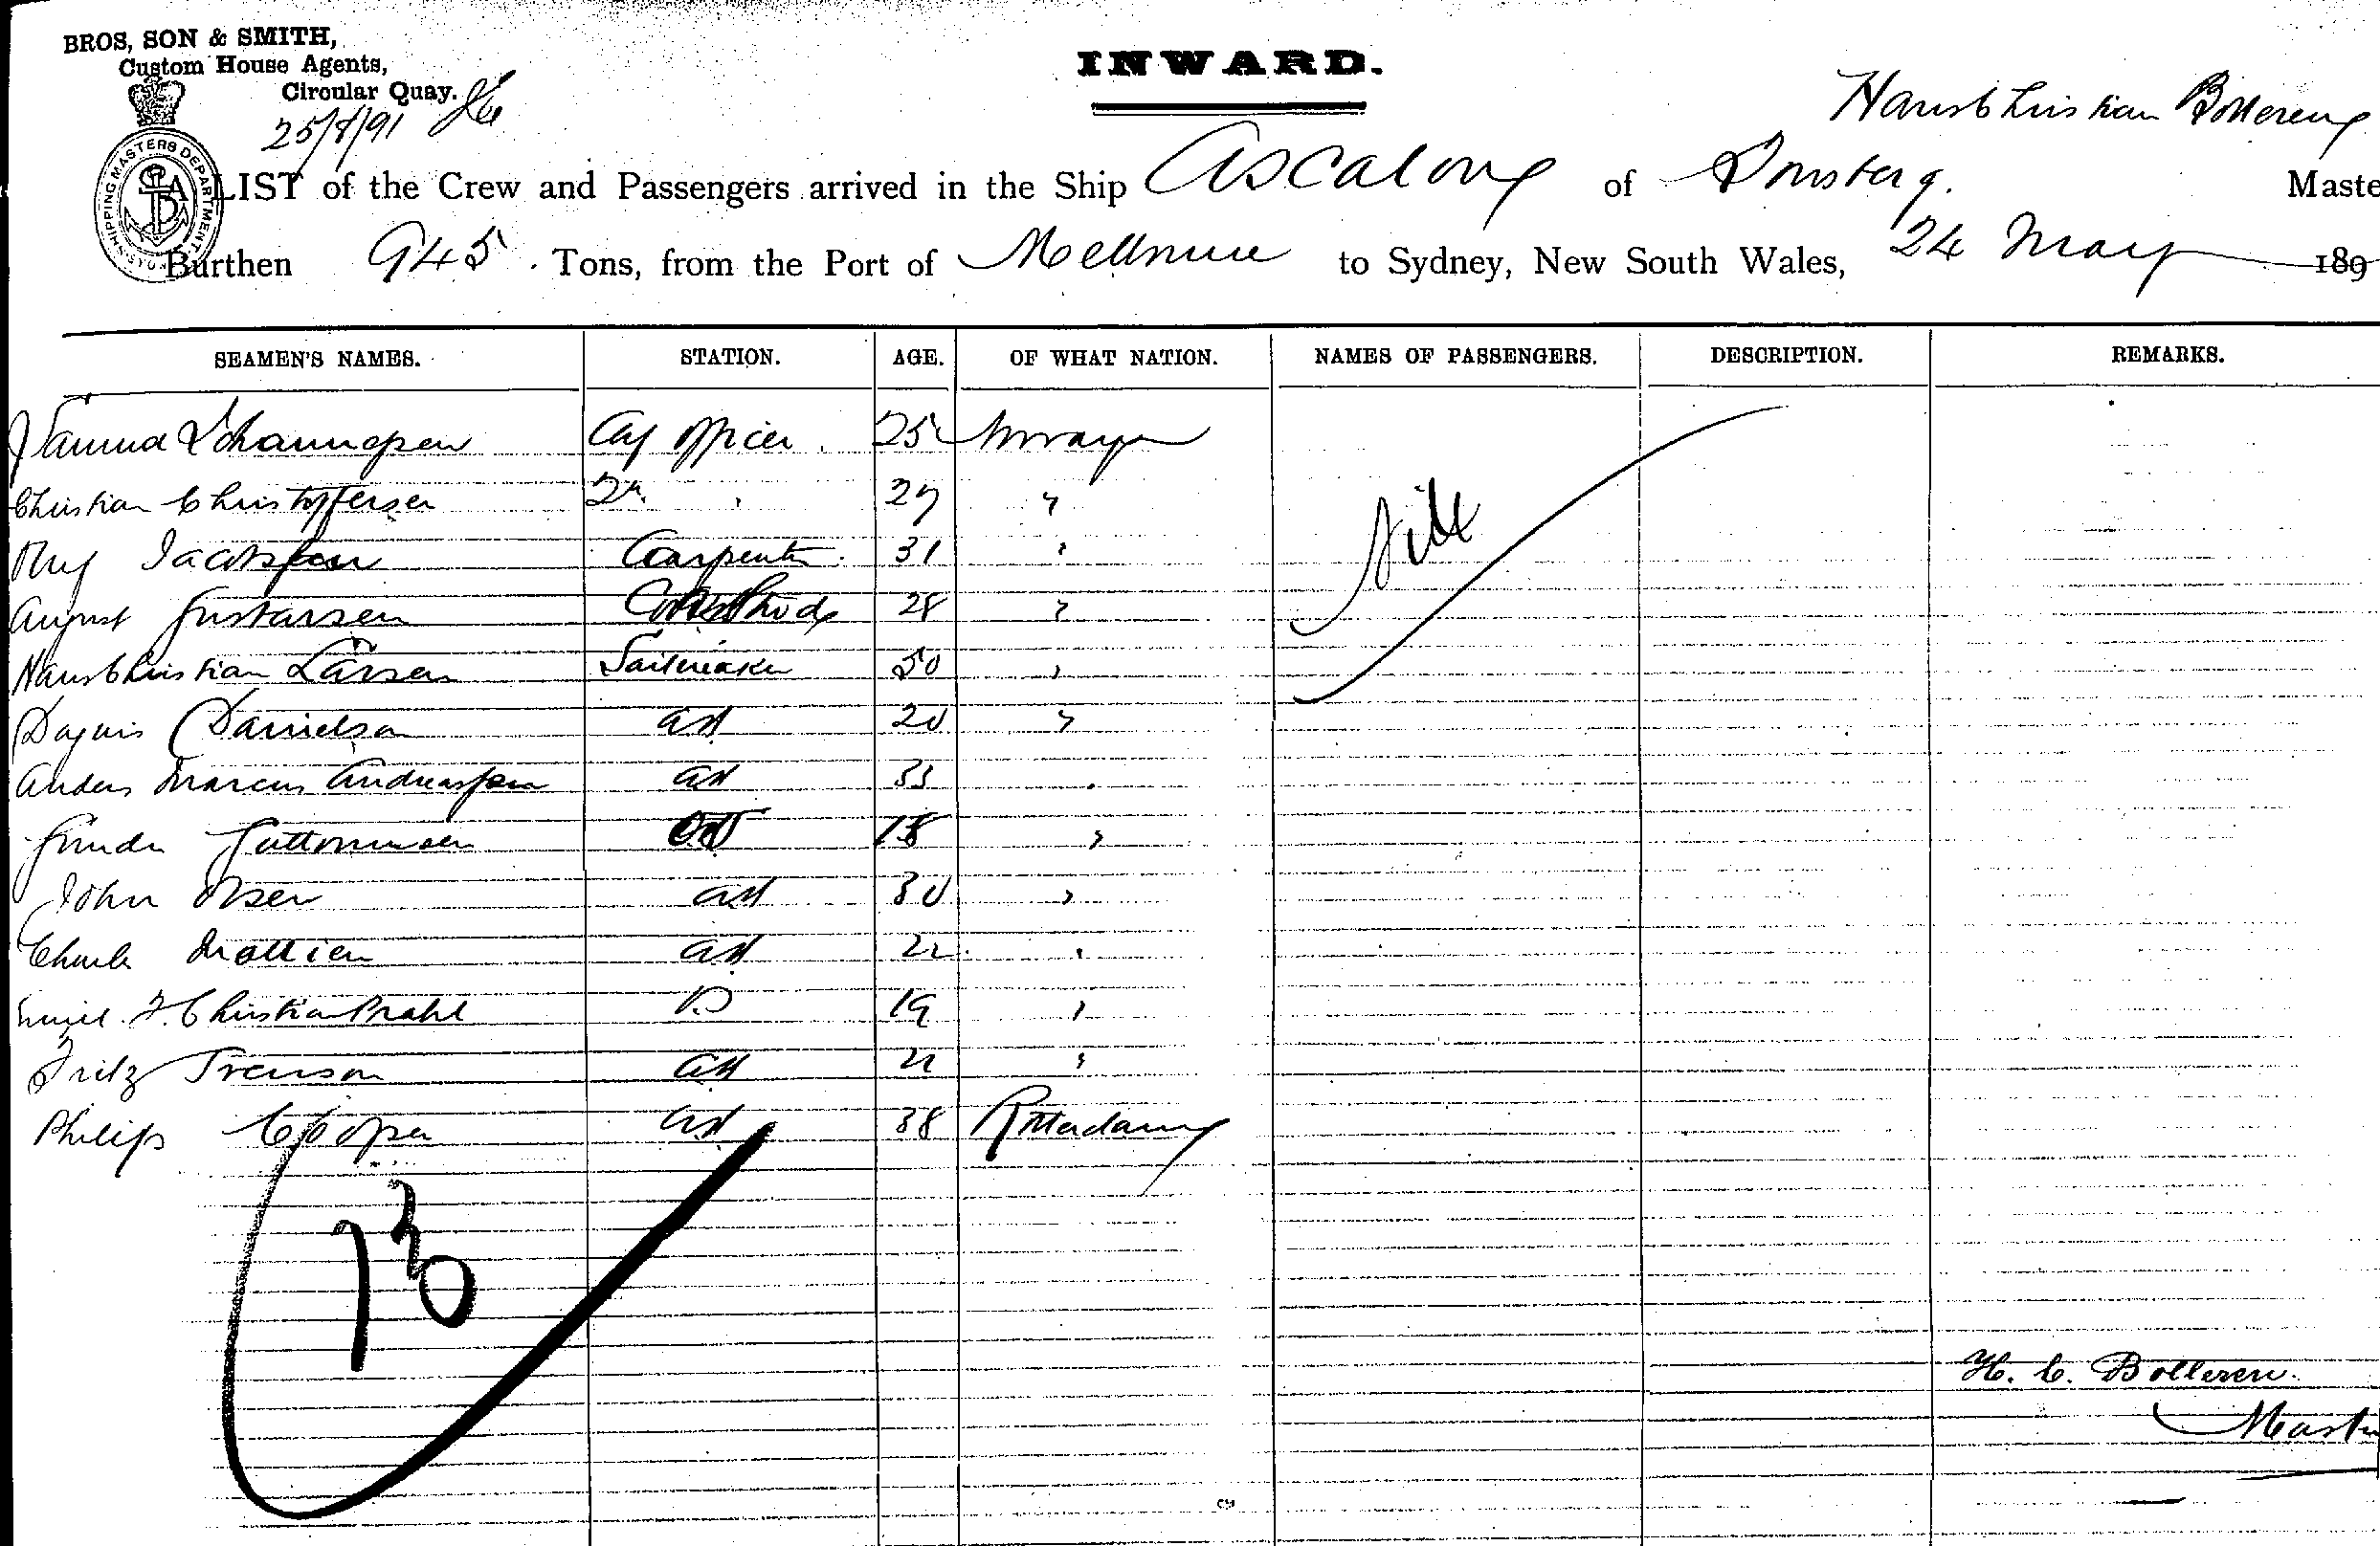 BROS, SON & SMITH,
Custom House Agents,
Circular Quay.
25/8/91
INWARD.
Hans Christian Bollerens
SHIPPING MASTERS DEPARTMENT
A LIST of the Crew and Passengers arrived in the Ship Ascalong of Tonsberg. Maste
Burthen 945 . Tons, from the Port of Melbourne to Sydney, New South Wales, 24 May 189
SEAMEN'S NAMES. STATION. AGE. OF WHAT NATION. NAMES OF PASSENGERS. DESCRIPTION. REMARKS.
officer 25 Norway
Christian Christoffersen 2n " 27 "
Jacobsen Carpenter 31 "
August Gustavsen 28 "
Hans Christian Larsen Sailmaker 50 "
Danielsen AB 20 "
Anders Marcus Andreassen AB 33 "
OS 18 "
John Olsen AB 30 "
Charles AB 22 "
Emil F. Christian Prahl 19 "
Fritz AB "
Philips Cooper AB 38 Rotterdam
Nil
13
H. C. Bolleren.
Master